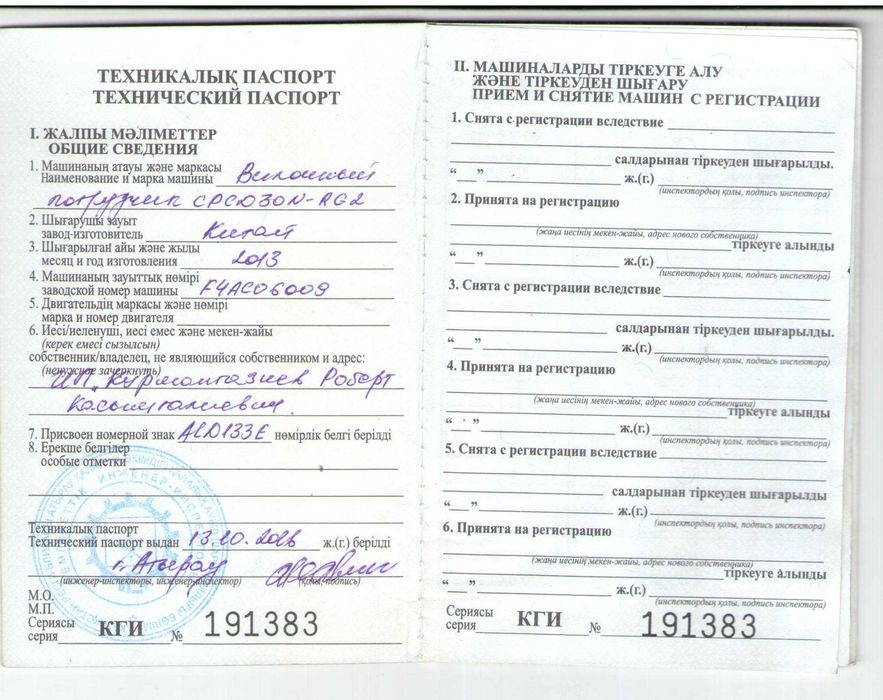 ТЕХНИКАЛЫҚ ПАСПОРТ
ТЕХНИЧЕСКИЙ ПАСПОРТ
I. ЖАЛПЫ МӘЛІМЕТТЕР
ОБЩИЕ СВЕДЕНИЯ
1. Машинаның атауы және маркасы
Наименование и марка машины Вилочный
погрузчик CPCD30N-RG2
2. Шығарушы зауыт
завод-изготовитель Китай
3. Шығарылған айы және жылы
месяц и год изготовления 2013
4. Машинаның зауыттық нөмірі
заводской номер машины F4AC06009
5. Двигательдің маркасы және нөмірі
марка и номер двигателя
6. Иесі/иеленуші, иесі емес және мекен-жайы
(керек емесі сызылсын)
собственник/владелец, не являющийся собственником и адрес:
(ненужное зачеркнуть)
ИП "Курмангазиев Роберт
Касымгалиевич.
7. Присвоен номерной знак ALD133E нөмірлік белгі берілді
8. Ерекше белгілер
особые отметки
Техникалық паспорт
Технический паспорт выдан 13.10. ж.(г.) берілді
г. Атырау
(инженер-инспекторы, инженер-инспектор) (қолы, подпись)
М.О.
М.П.
Сериясы
серия КГИ № 191383
II. МАШИНАЛАРДЫ ТІРКЕУГЕ АЛУ
ЖӘНЕ ТІРКЕУДЕН ШЫҒАРУ
ПРИЕМ И СНЯТИЕ МАШИН С РЕГИСТРАЦИИ
1. Снята с регистрации вследствие
салдарынан тіркеуден шығарылды.
“ ” ж.(г.)
(инспектордың қолы, подпись инспектора)
2. Принята на регистрацию
(жаңа иесінің мекен-жайы, адрес нового собственника)
тіркеуге алынды
“ ” ж.(г.)
(инспектордың қолы, подпись инспектора)
3. Снята с регистрации вследствие
салдарынан тіркеуден шығарылды.
“ ” ж.(г.)
(инспектордың қолы, подпись инспектора)
4. Принята на регистрацию
(жаңа иесінің мекен-жайы, адрес нового собственника)
тіркеуге алынды
“ ” ж.(г.)
(инспектордың қолы, подпись инспектора)
5. Снята с регистрации вследствие
салдарынан тіркеуден шығарылды
“ ” ж.(г.)
(инспектордың қолы, подпись инспектора)
6. Принята на регистрацию
(жаңа иесінің мекен-жайы, адрес нового собственника)
тіркеуге алынды
“ ” ж.(г.)
(инспектордың қолы, подпись инспектора)
Сериясы
серия КГИ № 191383